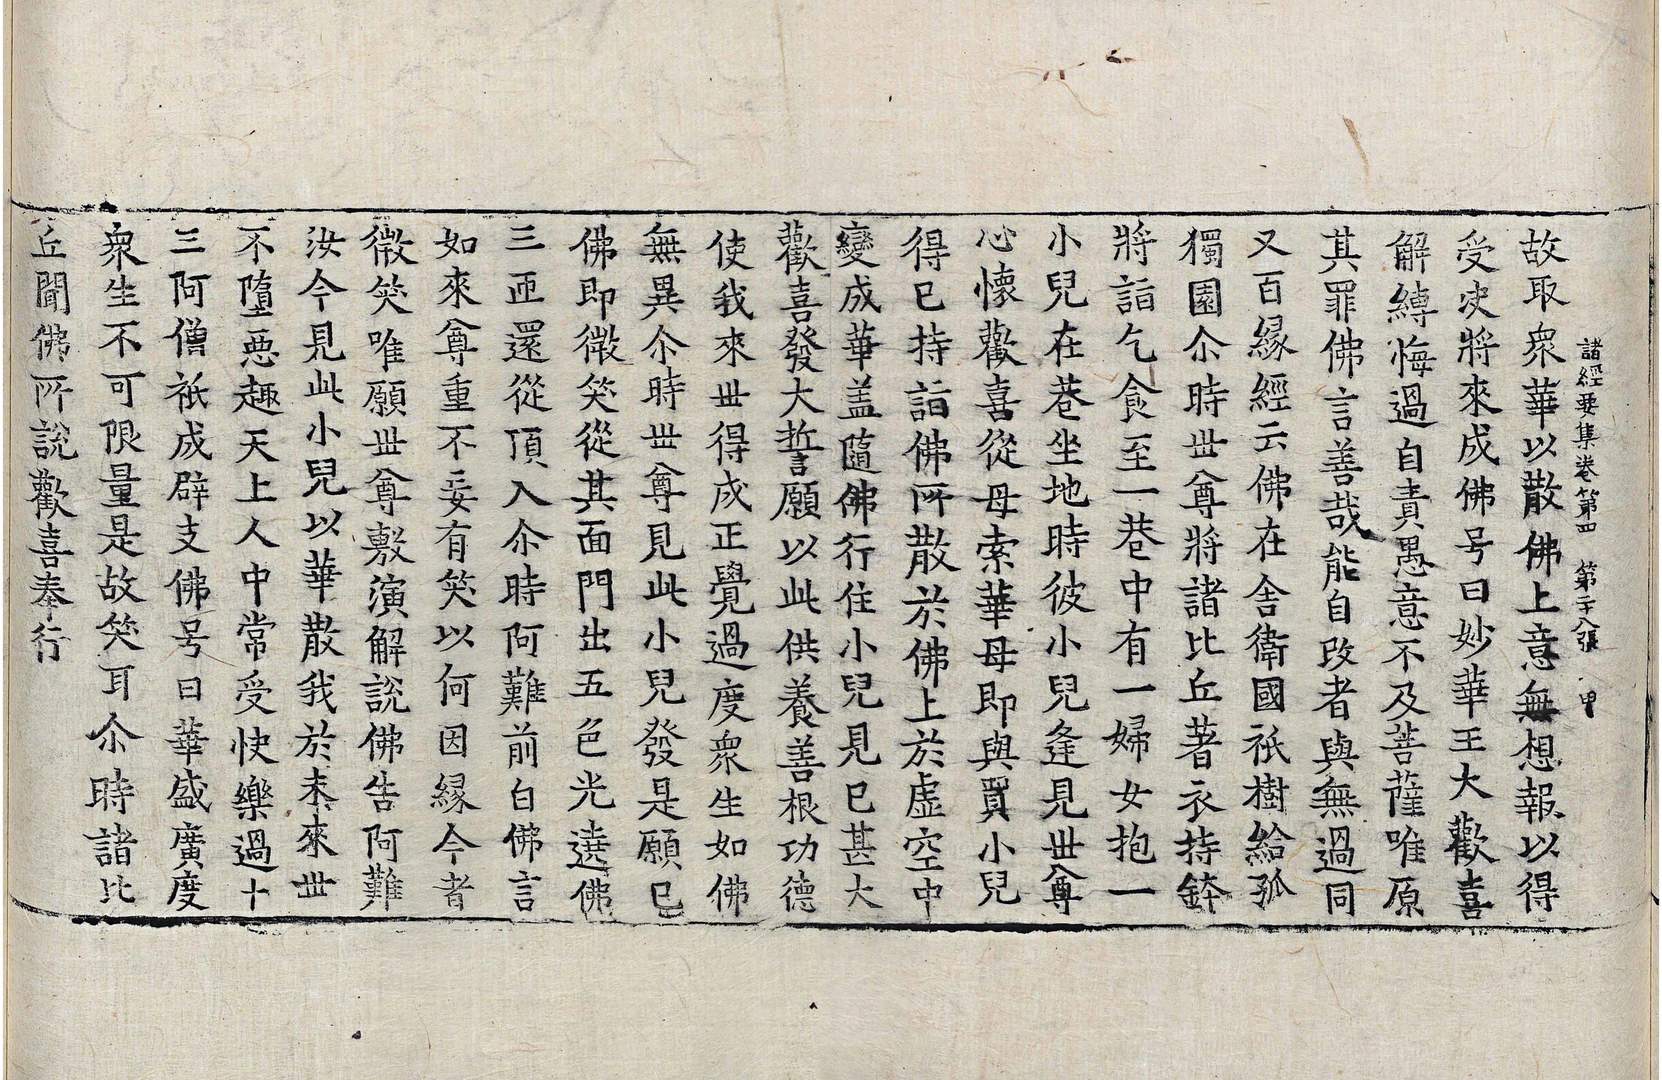 諸經要集卷第四 第二十八張 甲
故取衆華以散佛上意無想報以得
受决將來成佛号曰妙華王大歡喜
解縛悔過自責愚意不及菩薩唯原
其罪佛言善哉能自改者與無過同
又百縁經云佛在舍衛國祇樹給孤
獨園尒時世尊將諸比丘著衣持鉢
將詣乞食至一巷中有一婦女抱一
小兒在巷坐地時彼小兒逢見世尊
心懷歡喜從母索華母即與買小兒
得已持詣佛所散於佛上於虛空中
變成華盖隨佛行住小兒見已甚大
歡喜發大誓願以此供養善根功德
使我來世得成正覺過度衆生如佛
無異尒時世尊見此小兒發是願已
佛即微笑從其面門出五色光遶佛
三帀還從頂入尒時阿難前白佛言
如來尊重不妄有笑以何因縁今者
微笑唯願世尊敷演解說佛告阿難
汝今見此小兒以華散我於未來世
不墮惡趣天上人中常受快樂過十
三阿僧祇成辟支佛号曰華盛廣度
衆生不可限量是故笑耳尒時諸比
丘聞佛所說歡喜奉行